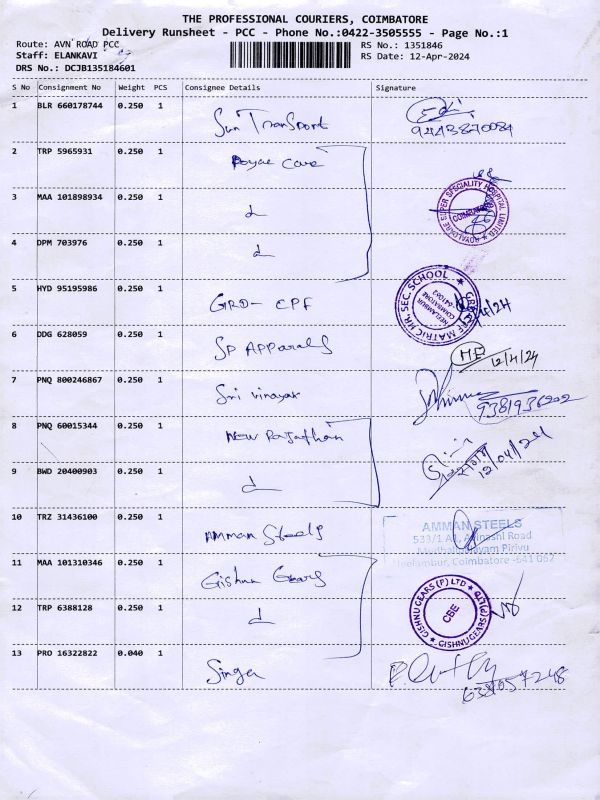 THE PROFESSIONAL COURIERS, COIMBATORE
Delivery Runsheet - PCC - Phone No.:0422-3505555 - Page No.:1
Route: AVN ROAD PCC
RS No.: 1351846
Staff: ELANKAVI
RS Date: 12-Apr-2024
DRS No.: DCJB135184601
S No Consignment No Weight PCS Consignee Details Signature
1 BLR 660178744 0.250 1 Sun Transport
9443870084
2 TRP 5965931 0.250 1 Royal Care
3 MAA 101898934 0.250 1 d
ROYALCARE SUPER SPECIALITY HOSPITAL LIMITED
COIMBATORE
4 DPM 703976 0.250 1 d
5 HYD 95195986 0.250 1 GRD- CPF
MATRIC HR. SEC. SCHOOL
NEELAMBUR
COIMBATORE
6 DDG 628059 0.250 1 SP APParals
12/4/24
7 PNQ 800246867 0.250 1 Sri vinayak
9381936202
8 PNQ 60015344 0.250 1 New Rajasthan
12/04/24
9 BWD 20400903 0.250 1 d
10 TRZ 31436100 0.250 1 Amman Steels
AMMAN STEELS
533/1 A1, Avinashi Road
Pirivu
Neelambur, Coimbatore -641 062
11 MAA 101310346 0.250 1 Gishnu Gears
GISHNU GEARS (P) LTD
CBE
12 TRP 6388128 0.250 1 d
13 PRO 16322822 0.040 1 Singer
6381057248